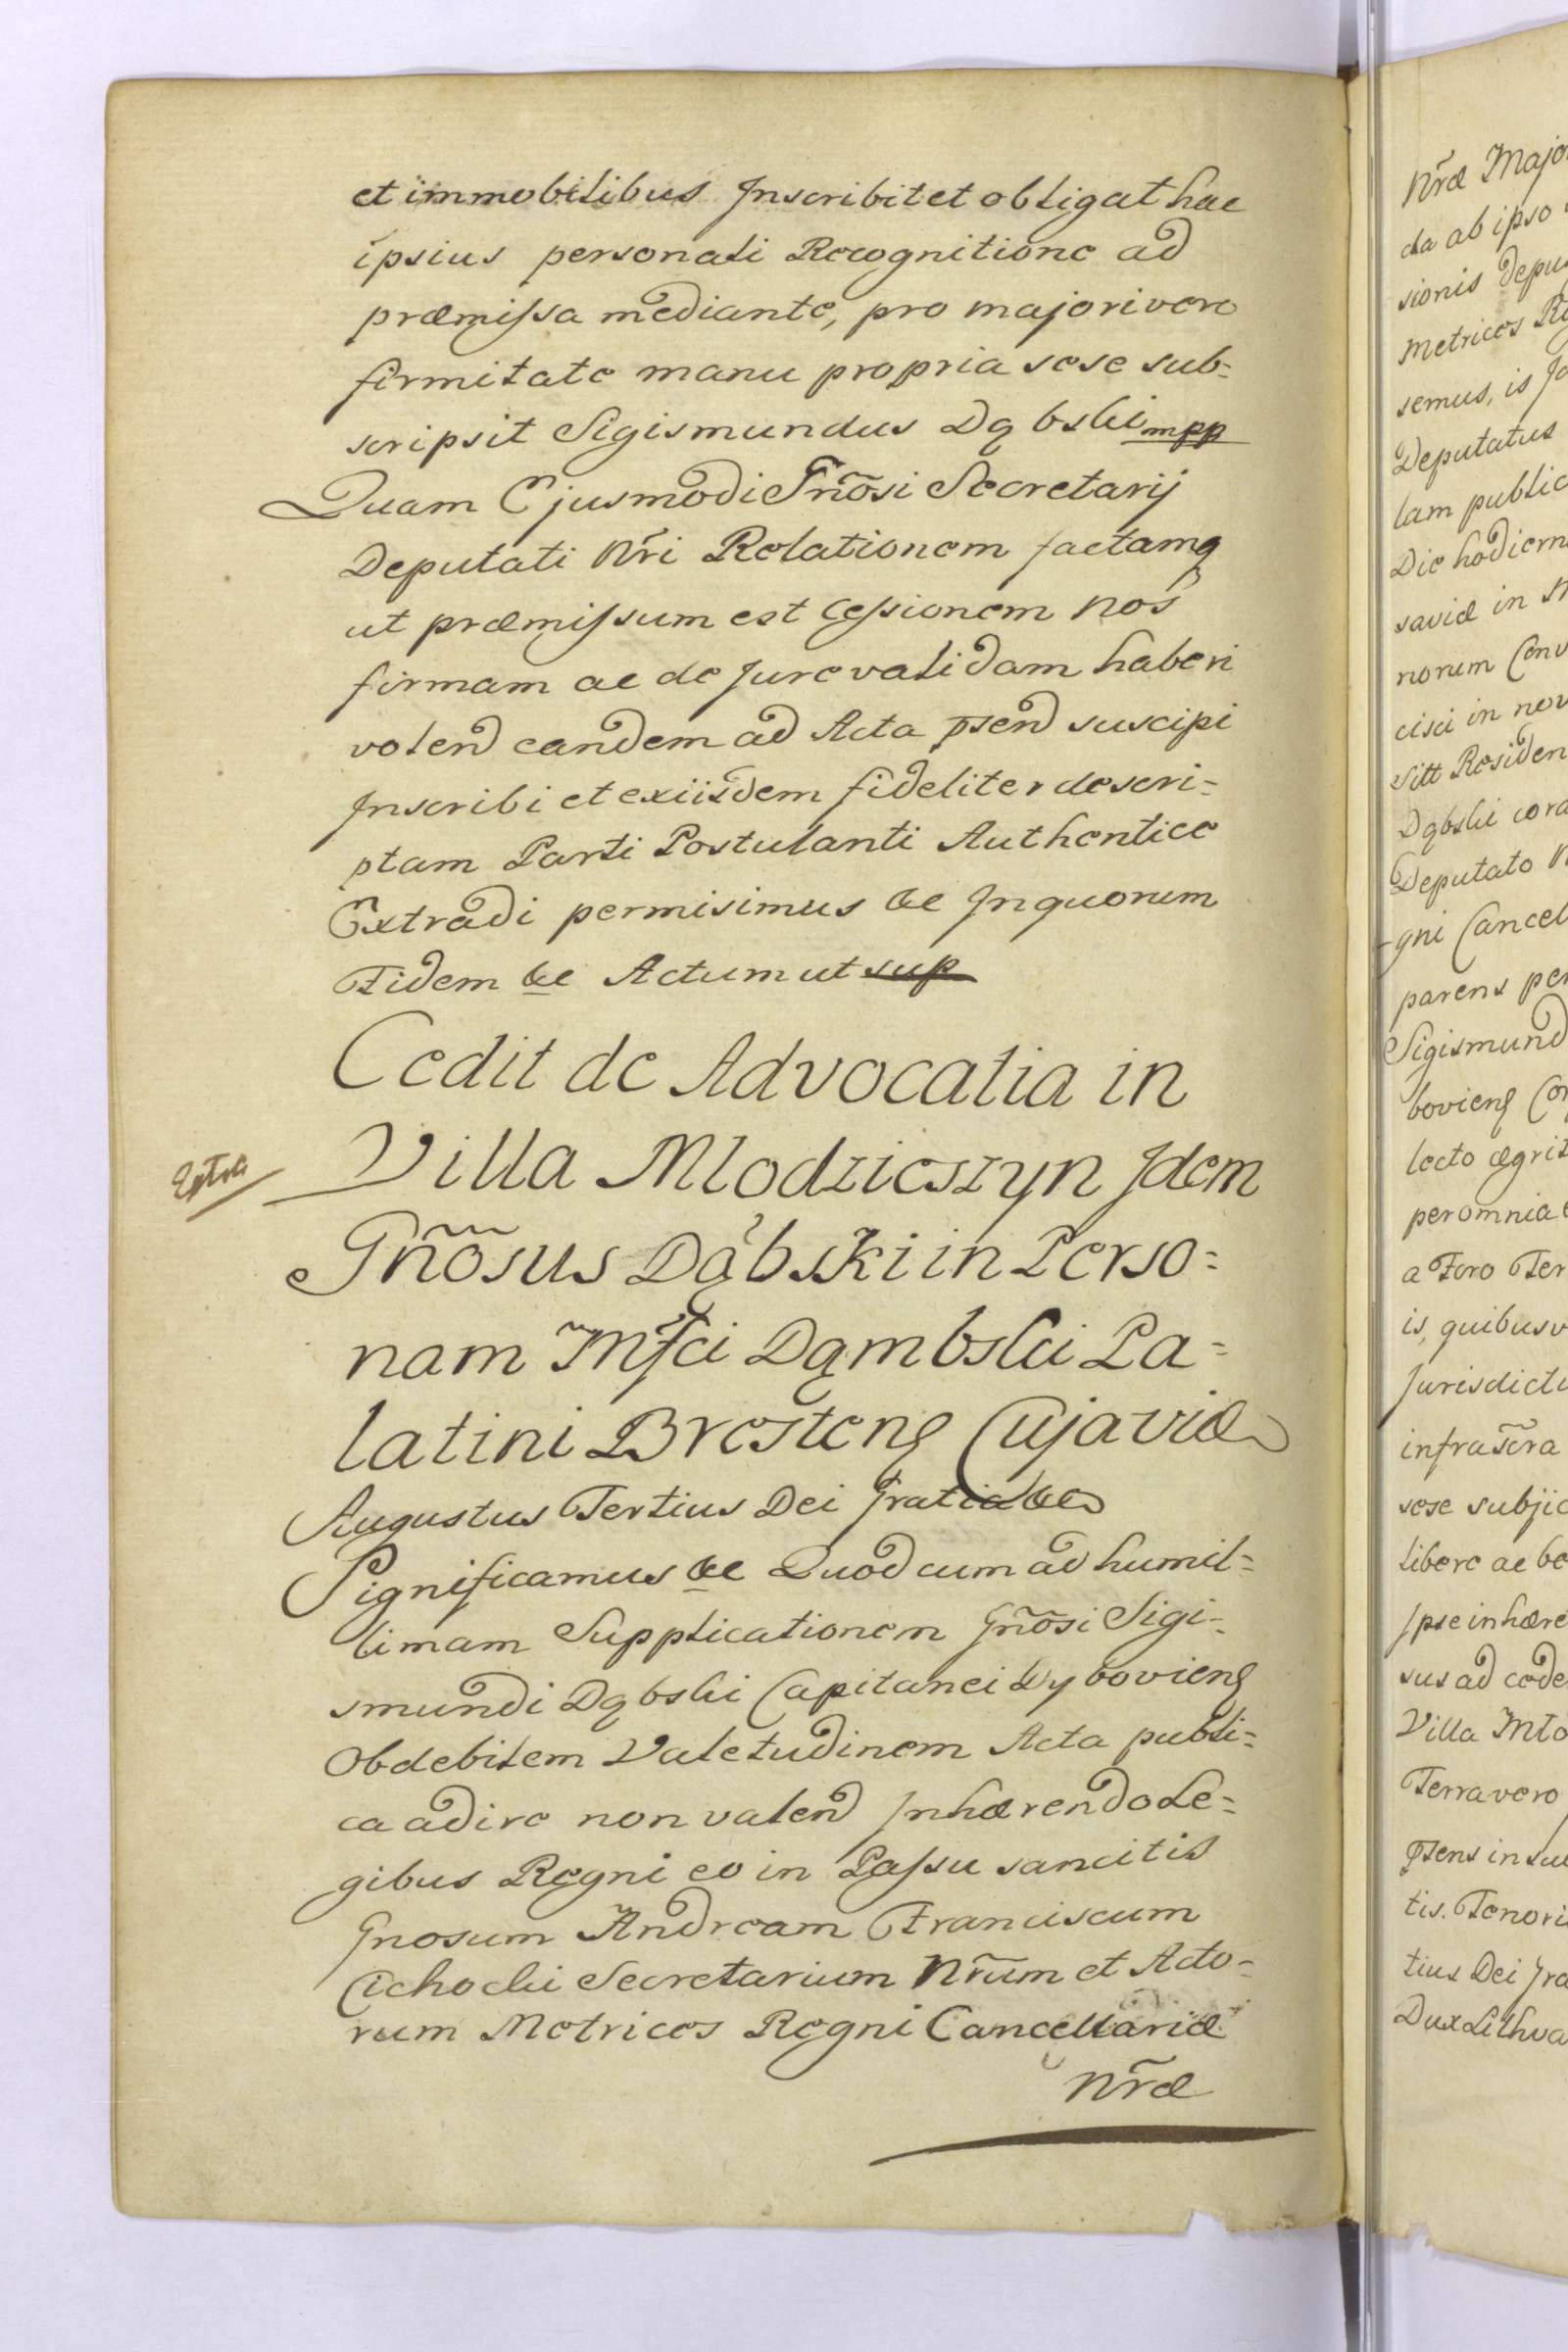 et immobilibus Inscribit et obligat hac
ipsius personali Recognitione ad
præmissa mediante, pro majori vero
firmitate manu propria sese sub=
scripsit Sigismundus Dąbski mpp
Quam Ejusmodi Gnõsi Secretarij
Deputati Nri Relationem factamq
ut præmissum est Cessionem nos
firmam ac de Jure validam haberi
volend eandem ad Acta p̄send suscipi
Inscribi et ex iisdem fideliter descri=
ptam Parti Postulanti Authentice
Extradi permisimus &c In quorum
Fidem &c Actum ut sup
Cedit de Advocatia in
Extra
Villa Mlodzieszyn Idem
Gñõsus Dąbski in Perso=
nam Mfci Dąmbski Pa=
latini Brestens Cujaviæ
Augustus Tertius Dei Gratia &c
Significamus &c Quod cum ad humil=
limam Supplicationem Gnõsi Sigi=
smundi Dąbski Capitanei Dyboviens
Ob debilem Valetudinem Acta publi=
ca adire non valend Inhærendo Le=
gibus Regni eo in Passu sancitis
Gnosum Andream Franciscum
Cichocki Secretarium Nrũm et Acto=
rum Metrices Regni Cancellariæ
Nr̃æ
Nr̃æ Majo
da ab ipso
sionis Depu
Metrices Re
semus, is Ja
Deputatus
lam public
Die hodiern
saviæ in
norum Conv
cisci in nov
Sitt Residen
Dąbski cora
Deputato N
gni Cancel
parens per
Sigismund
boviens Co
lecto ægrit
per omnia
a Foro Ter
is, quibus v
Jurisdicti
infrascra
sese subjic
libere ac be
Ipse inhære
sus ad eode
Villa Mło
Terra vero
p̄sens in su
tis. Tenori
tius Dei Gra
Dux Lithua